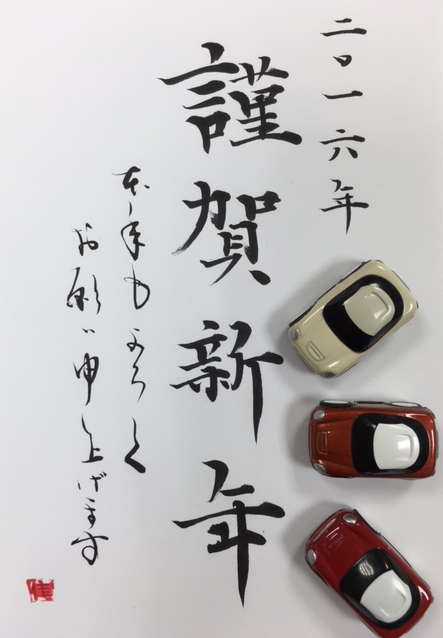 二〇一六年
謹賀新年
本年もよろしく
お願い申し上げます